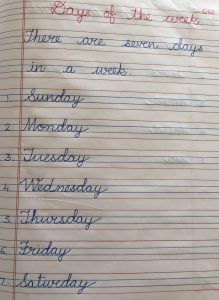 Days of the week
CW
There are seven days
in a week.
1. Sunday
2 Monday
3. Tuesday
4. Wednesday
5. Thursday
6. Friday
7. Saturday